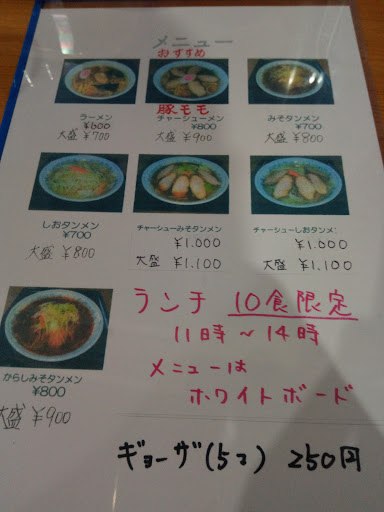 メニュー
おすすめ
ラーメン
¥600
大盛 ¥700
豚モモ
チャーシューメン
¥800
大盛 ¥900
みそタンメン
¥700
大盛 ¥800
しおタンメン
¥700
大盛 ¥800
チャーシューみそタンメン
¥1.000
大盛 ¥1.100
チャーシューしおタンメン
¥1.000
大盛 ¥1,100
からしみそタンメン
¥800
大盛 ¥900
ランチ 10食限定
11時～14時
メニューは
ホワイトボード
ギョーザ(5コ) 250円